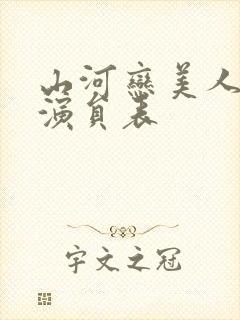 山河恋美人
演员表
宇文之冠